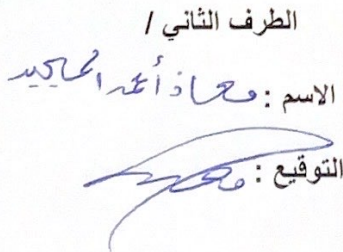 الطرف الثاني /
الاسم : معاذ أحمد
التوقيع :